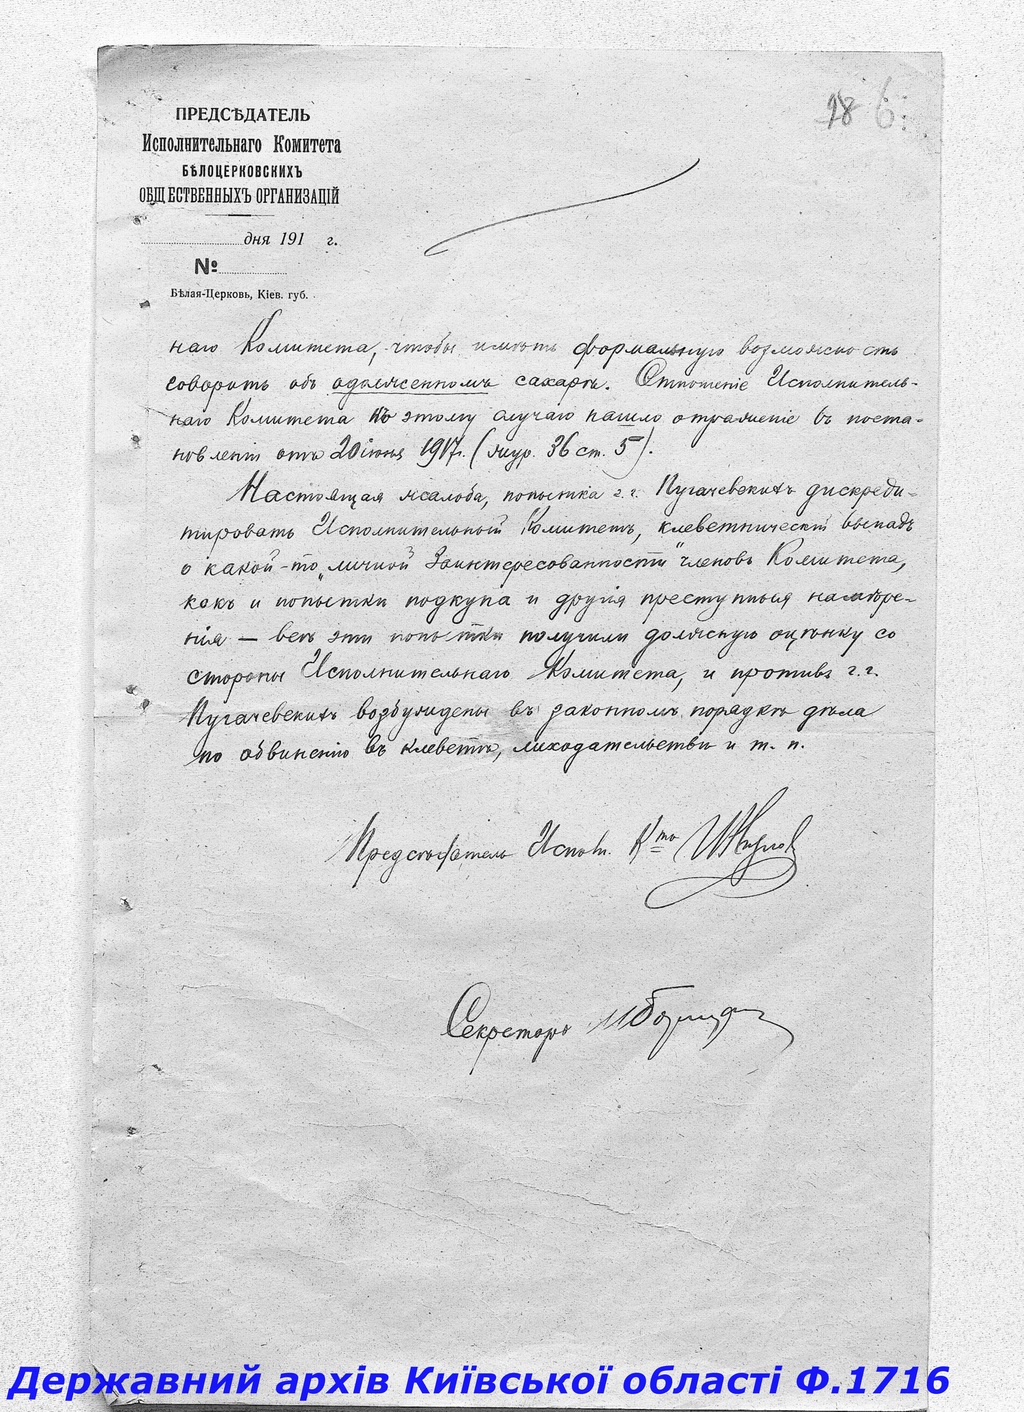 18 6
ПРЕДСѢДАТЕЛЬ
Исполнительнаго Комитета
БѢЛОЦЕРКОВСКИХЪ
ОБЩЕСТВЕННЫХЪ ОРГАНИЗАЦІЙ
дня 191 г.
№
Бѣлая-Церковь, Кіев. губ.
наго Комитета, чтобы имѣть формальную возможность
говорить объ одолженномъ сахарѣ. Отношеніе Исполнитель-
наго Комитета по этому случаю нашло отраженіе въ поста-
новленіи отъ 20 іюня 1917г. (жур. 36 ст. 5).
Настоящая жалоба, попытка г.г. Пугачевскихъ дискреди-
тировать Исполнительный Комитетъ, клеветническій выпадъ
о какой-то „личной заинтересованности" членовъ Комитета,
какъ и попытки подкупа и другія преступныя намѣре-
нія — всѣ эти попытки получили должную оцѣнку со
стороны Исполнительнаго Комитета, и противъ г.г.
Пугачевскихъ возбуждены въ законномъ порядкѣ дѣла
по обвиненію въ клеветѣ, лиходательствѣ и т. п.
Предсѣдатель Исполн. К-та
Секретарь
Державний архів Київської області Ф.1716